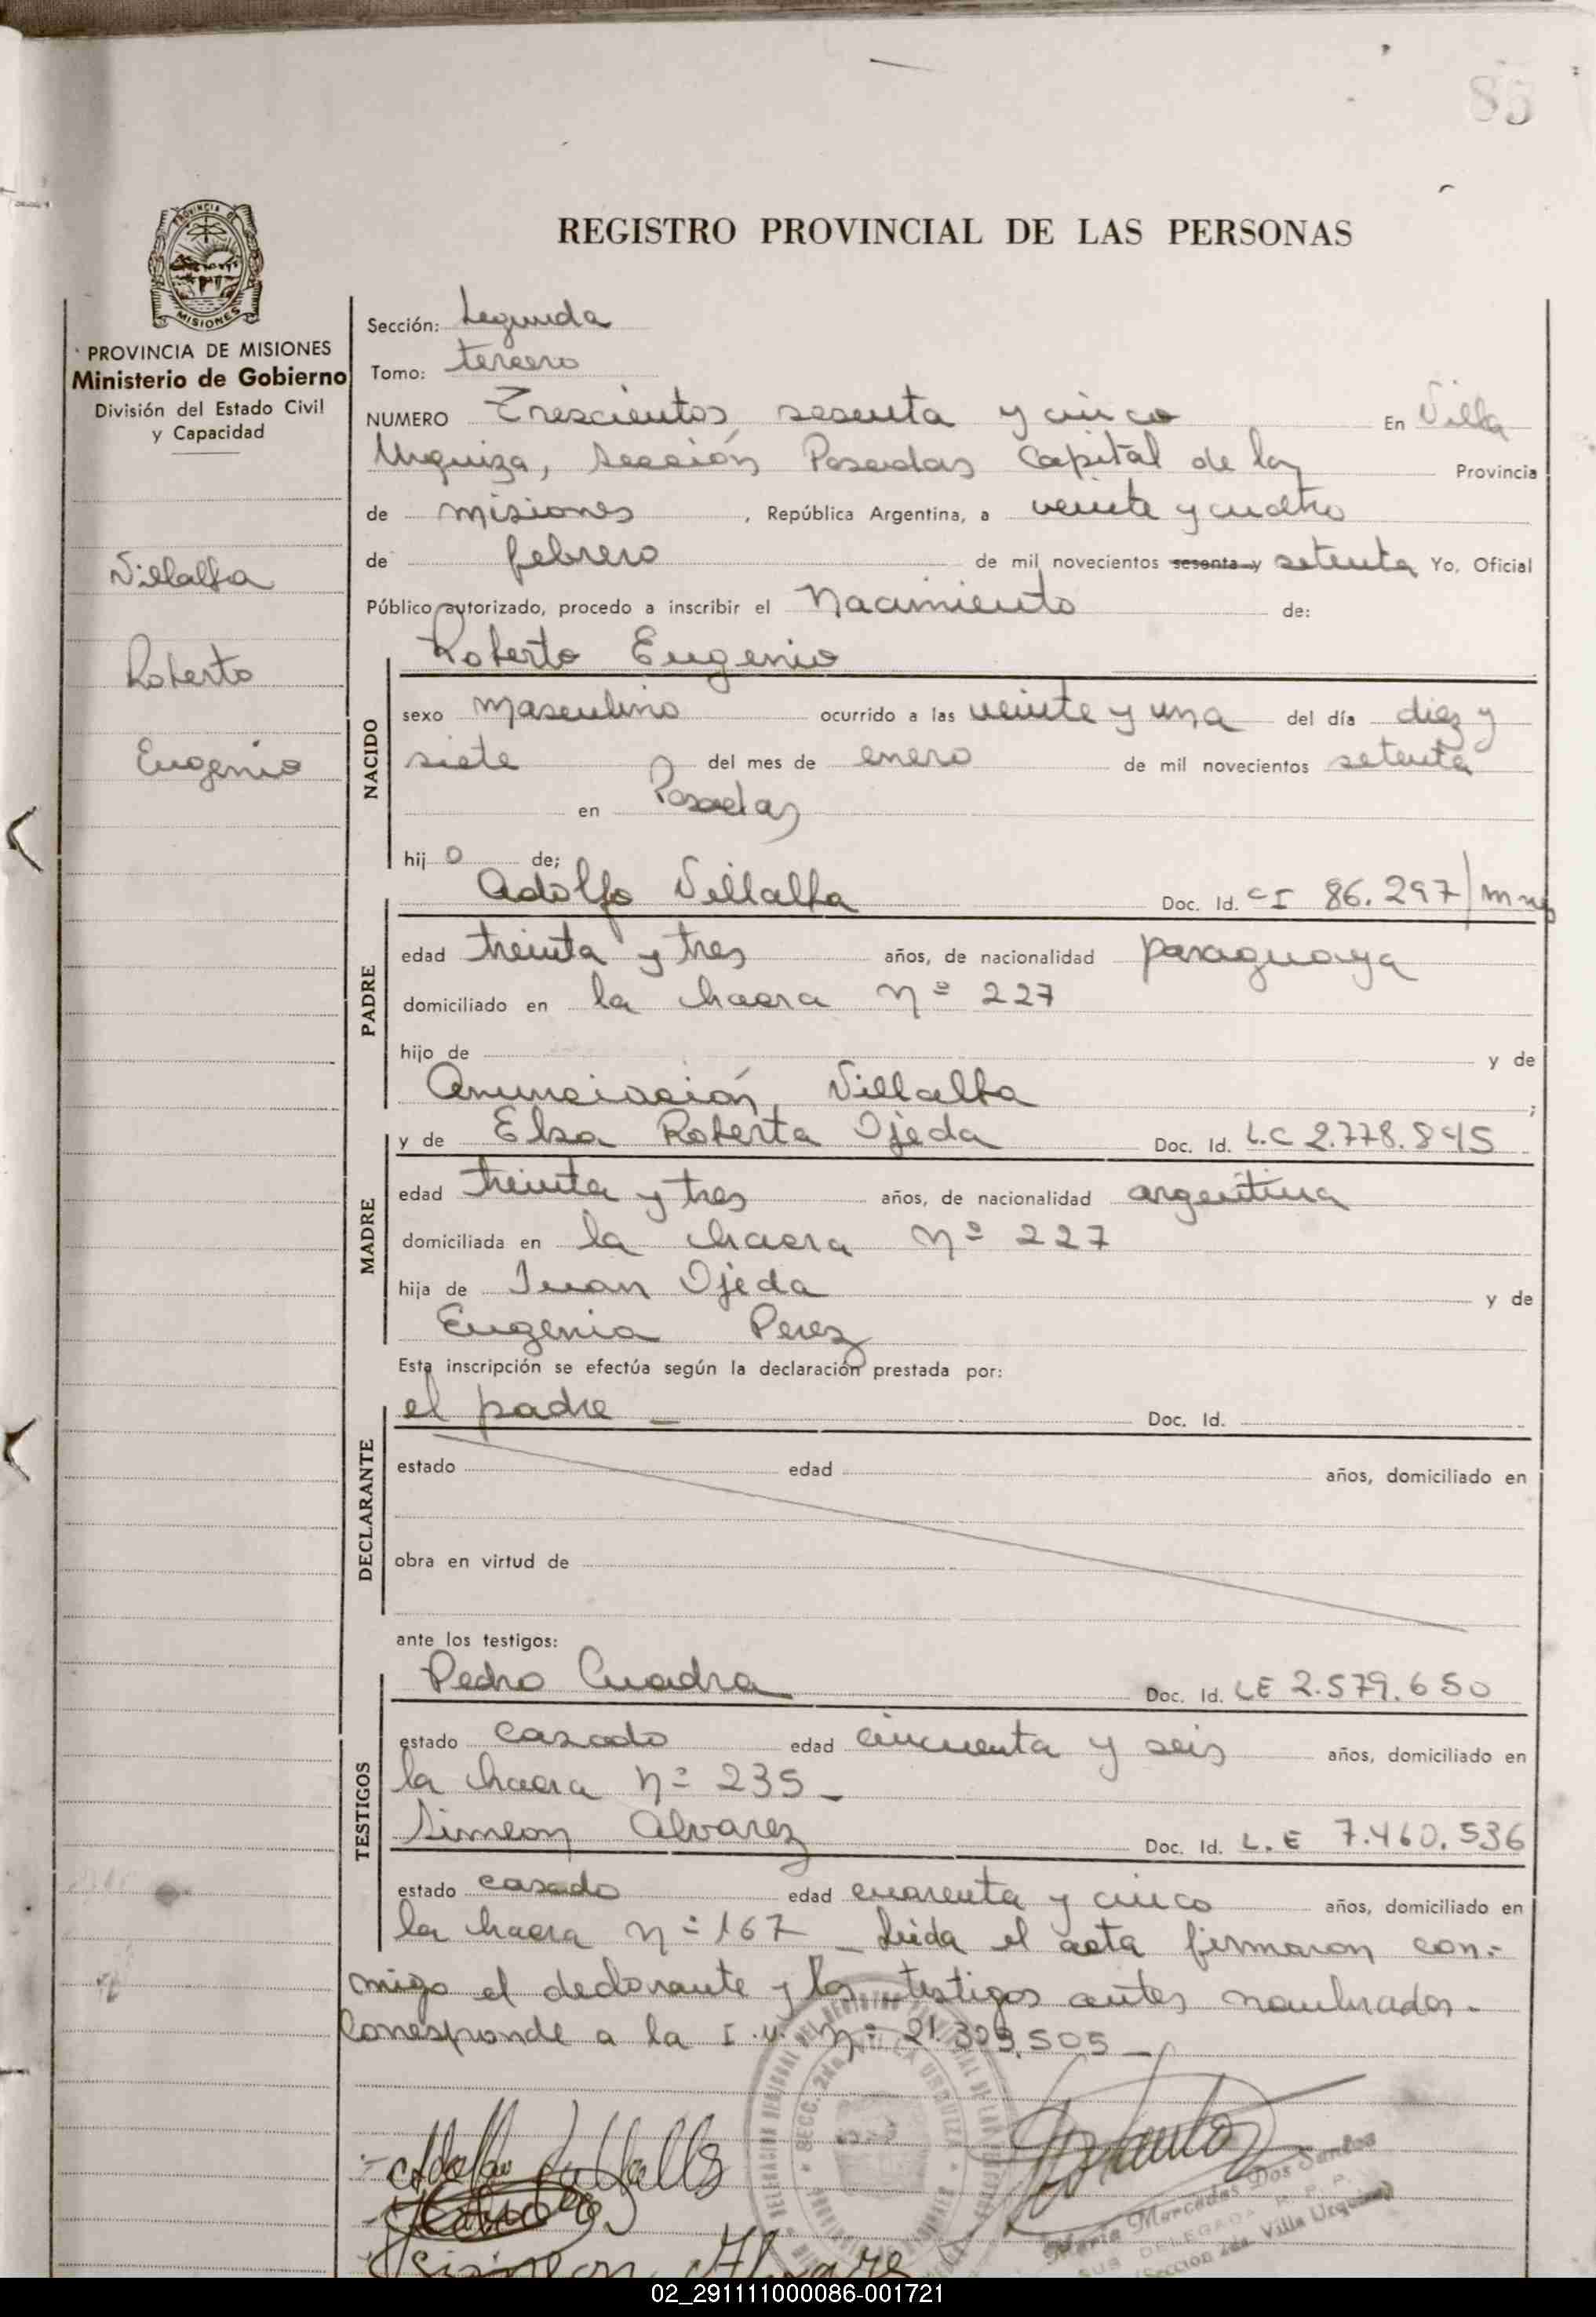 85
REGISTRO PROVINCIAL DE LAS PERSONAS
PROVINCIA DE
MISIONES
PROVINCIA DE MISIONES
Ministerio de Gobierno
División del Estado Civil
y Capacidad
Villalba
Roberto
Eugenio
Sección: Segunda
Tomo: tercero
NUMERO Trescientos sesenta y cinco En Villa
Urquiza, Sección Posadas Capital de la Provincia
de misiones, República Argentina, a veinte y cuatro
de febrero de mil novecientos sesenta y setenta Yo, Oficial
Público autorizado, procedo a inscribir el Nacimiento de:
Roberto Eugenio
NACIDO
sexo masculino ocurrido a las veinte y una del día diez y
siete del mes de enero de mil novecientos setenta
en Posadas
hijo de;
Adolfo Villalba Doc. Id. CI 86.297/mnes
PADRE
edad treinta y tres años, de nacionalidad paraguaya
domiciliado en la chacra Nº 227
hijo de y de
Anunciación Villalba ;
MADRE
y de Elsa Roberta Ojeda Doc. Id. L.C 2.778.845
edad treinta y tres años, de nacionalidad argentina
domiciliada en la chacra Nº 227
hija de Juan Ojeda y de
Eugenia Perez
Esta inscripción se efectúa según la declaración prestada por:
DECLARANTE
el padre — Doc. Id.
estado edad años, domiciliado en
obra en virtud de
ante los testigos:
TESTIGOS
Pedro Cuadra Doc. Id. LE 2.579.650
estado casado edad cincuenta y seis años, domiciliado en
la chacra nº 235 —
Simeon Alvarez Doc. Id. L.E 7.460.536
estado casado edad cuarenta y cinco años, domiciliado en
la chacra nº 167 — Leida el acta firmaron con-
migo el declarante y los testigos antes nombrados.
Corresponde a la I.U. Nº 21.329.505 —
Adolfo Villalba
Simeon Alvarez
Maria Mercedes Dos Santos
SUB DELEGADA R. P. P.
Sección 2da. Villa Urquiza
02_291111000086-001721